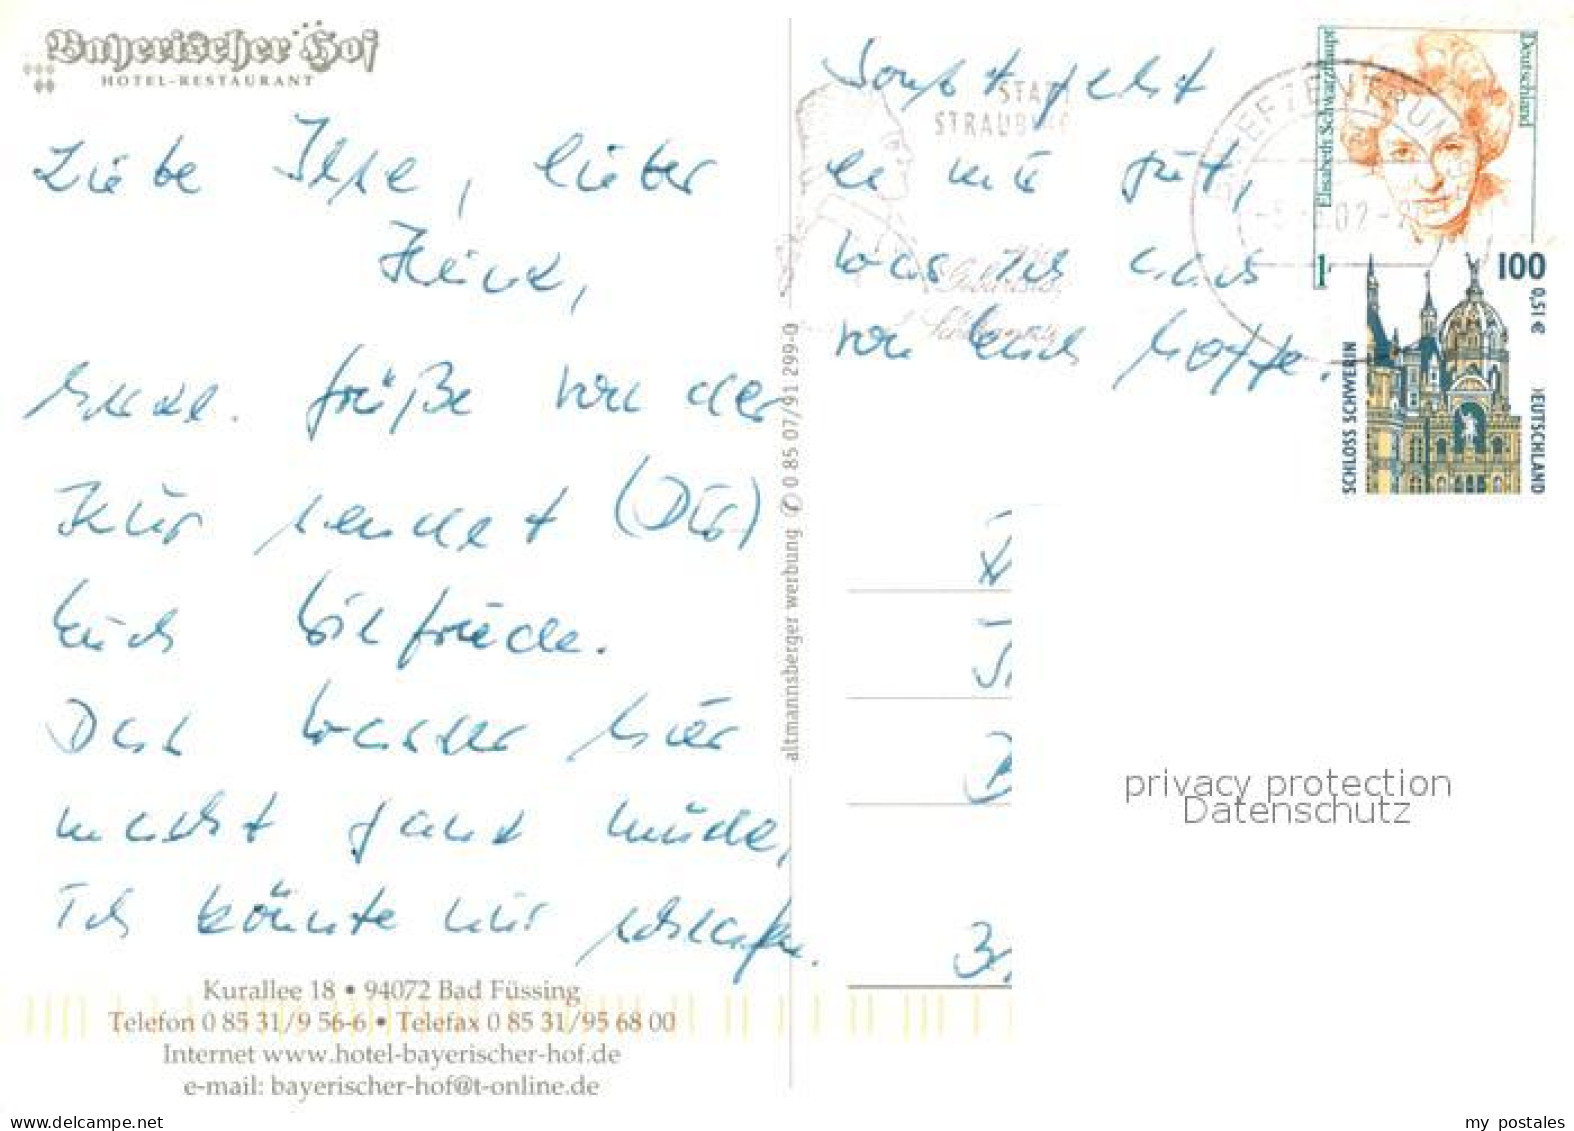 Bayerischer Hof
HOTEL-RESTAURANT
Liebe Ilse, lieber
Heinz,
grüße von der
Kur sendet (Dir)
Euch Wilfriede.
Das Wasser hier
macht ganz müde,
ich könnte nur schlafen.
Kurallee 18 • 94072 Bad Füssing
Telefon 0 85 31/9 56-6 • Telefax 0 85 31/95 68 00
Internet www.hotel-bayerischer-hof.de
e-mail: bayerischer-hof@t-online.de
altmannsberger werbung ✆ 0 85 07/91 299-0
Sonst geht
es mir gut,
was ich auch
von Euch hoffe.
STADT
STRAUBING
BRIEFZENTRUM
Elisabeth Schwarzhaupt
Deutschland
100
0,51 €
SCHLOSS SCHWERIN
DEUTSCHLAND
privacy protection
Datenschutz
www.delcampe.net
my_postales